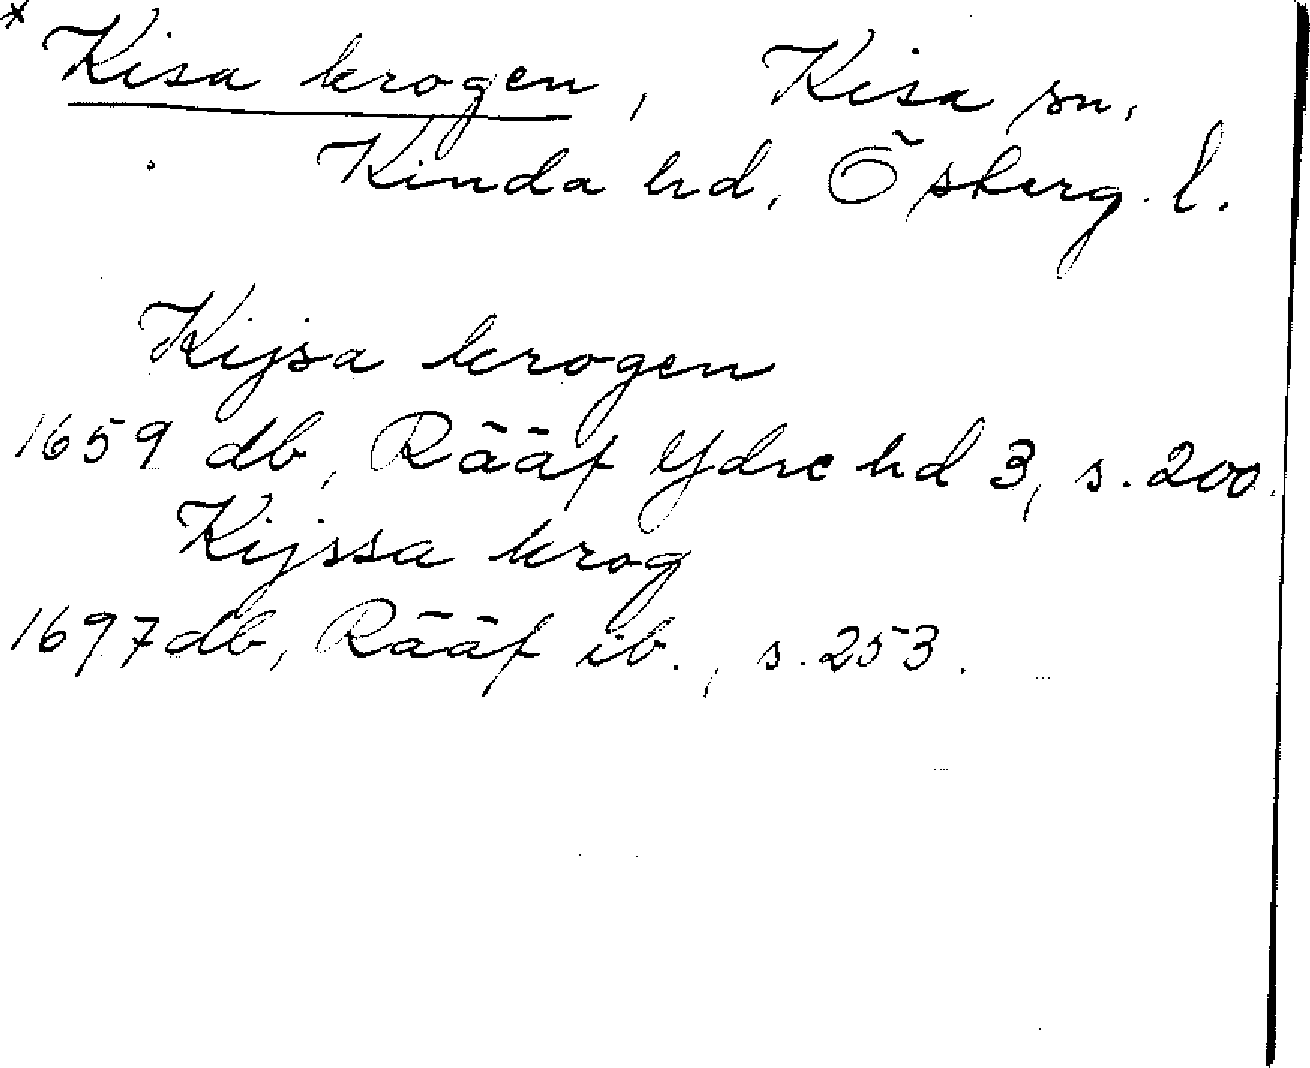 * Kisa krogen, Kisa sn,
Kinda hd, Österg. l.
Kijsa krogen
1659 db, Rääf Ydre hd 3, s. 200.
Kijssa krog
1697 db, Rääf ib., s. 253.